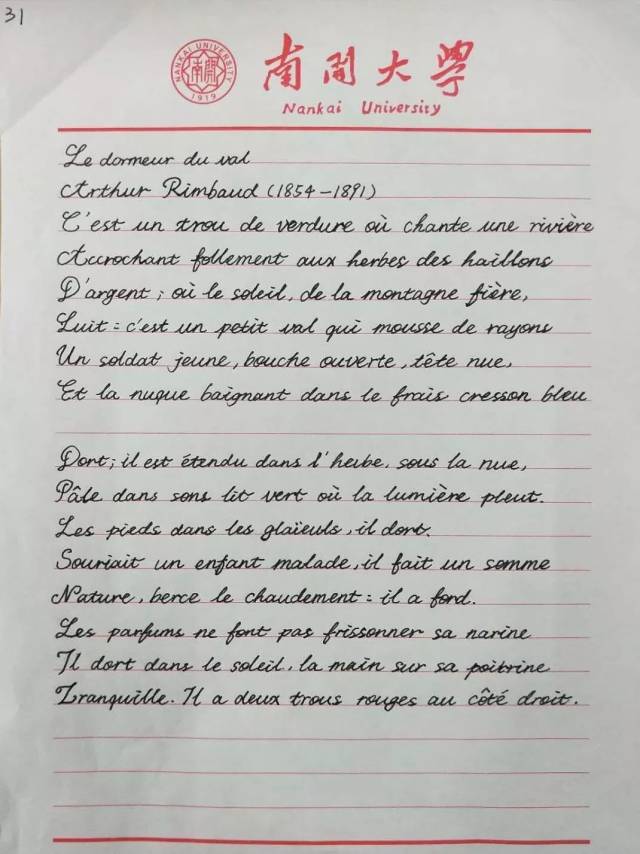 31
NANKAI UNIVERSITY
南開
1919
南開大學
Nankai University
Le dormeur du val
Arthur Rimbaud (1854-1891)
C'est un trou de verdure où chante une rivière
Accrochant follement aux herbes des haillons
D'argent; où le soleil, de la montagne fière,
Luit: c'est un petit val qui mousse de rayons
Un soldat jeune, bouche ouverte, tête nue,
Et la nuque baignant dans le frais cresson bleu
Dort; il est étendu dans l'herbe, sous la nue,
Pâle dans sons lit vert où la lumière pleut.
Les pieds dans les glaïeuls, il dort.
Souriait un enfant malade, il fait un somme
Nature, berce le chaudement: il a ford.
Les parfums ne font pas frissonner sa narine
Il dort dans le soleil, la main sur sa poitrine
Tranquille. Il a deux trous rouges au côté droit.